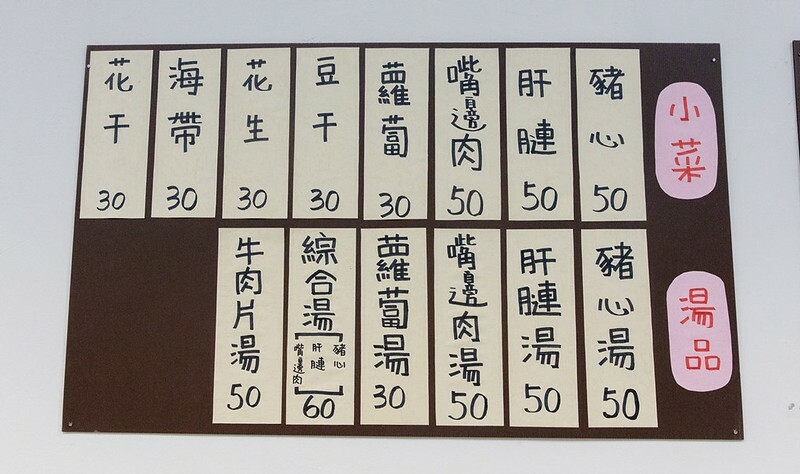 小菜
豬心 50
肝膢 50
嘴邊肉 50
蘿蔔 30
豆干 30
花生 30
海帶 30
花干 30
湯品
豬心湯 50
肝膢湯 50
嘴邊肉湯 50
蘿蔔湯 30
綜合湯[豬心 肝膢 嘴邊肉] 60
牛肉片湯 50